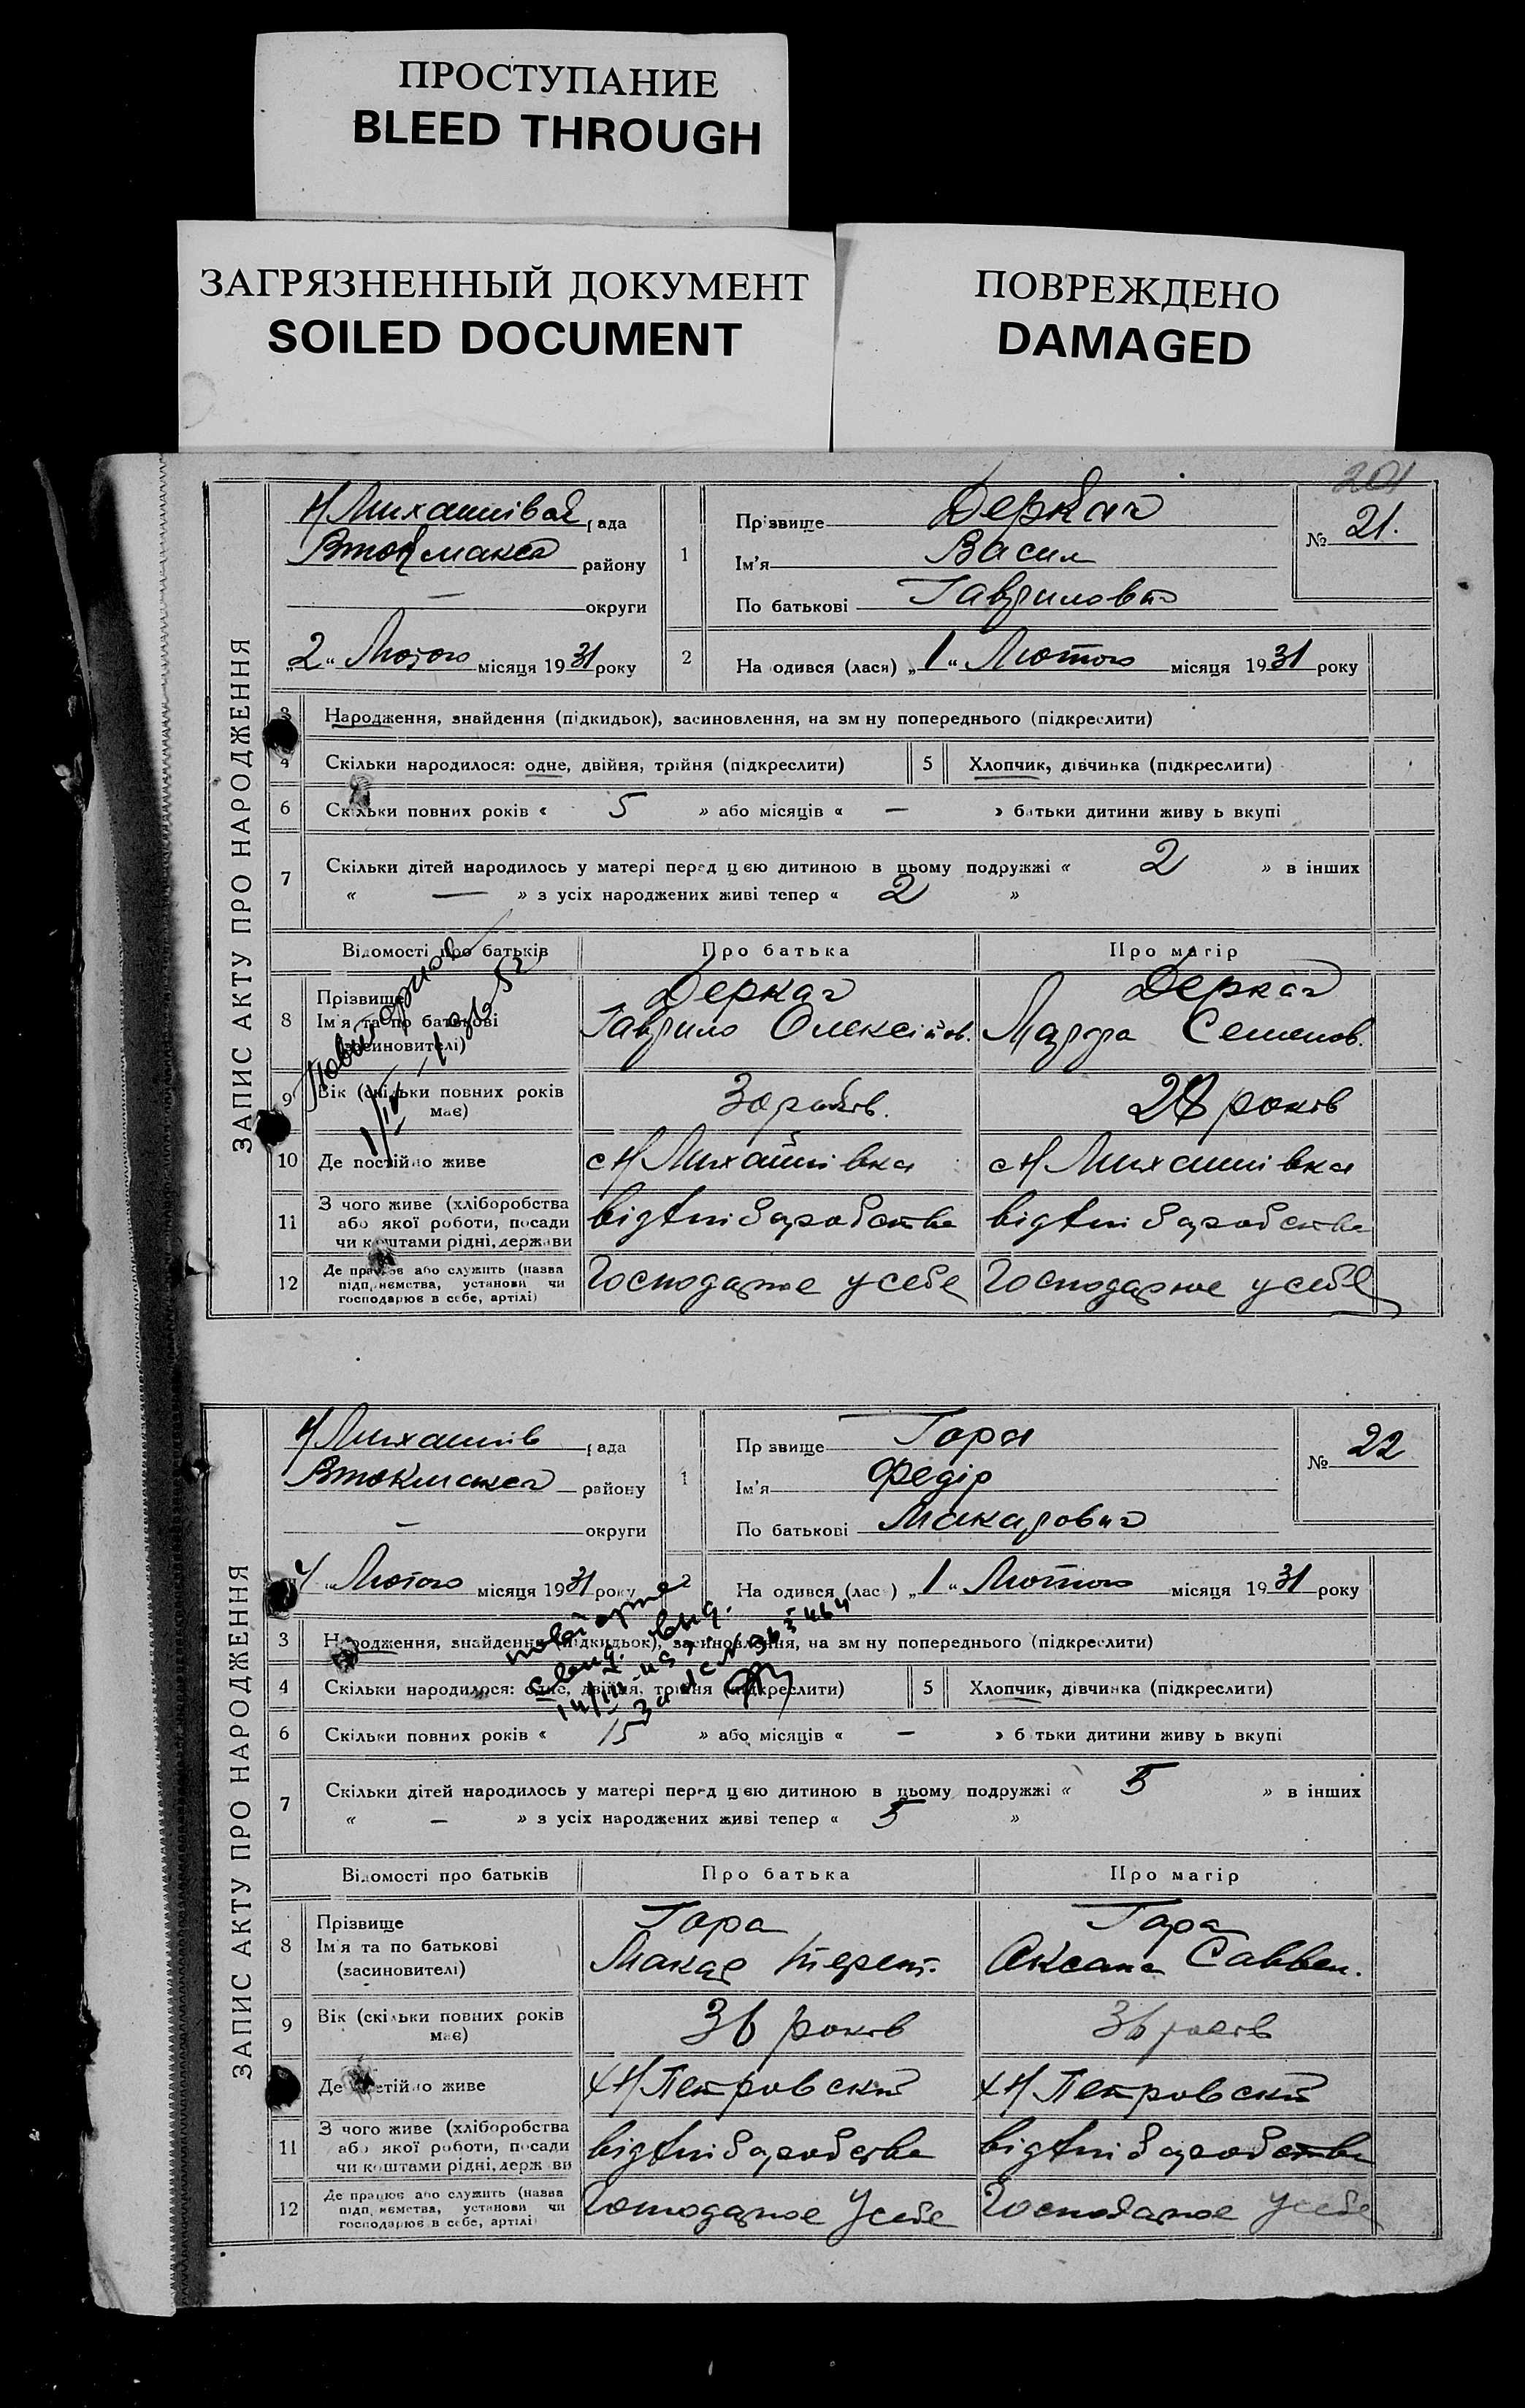 ПРОСТУПАНИЕ
BLEED THROUGH
ЗАГРЯЗНЕННЫЙ ДОКУМЕНТ
SOILED DOCUMENT
ПОВРЕЖДЕНО
DAMAGED
201
ЗАПИС АКТУ ПРО НАРОДЖЕННЯ
Н/Михайлівск рада
Втокмакск району
— округи
„2“ Лютого місяця 1931 року
1
Прізвище Деркач
Ім'я Васил
По батькові Гаврилович
№ 21.
2 На одився (лася) „1“ Лютого місяця 1931 року
3 Народження, знайдення (підкидьок), засиновлення, на зм ну попереднього (підкреслити)
4 Скільки народилося: одне, двійня, трійня (підкреслити) 5 Хлопчик, дівчинка (підкреслити)
6 Скільки повних років « 5 » або місяців « — » батьки дитини живу ь вкупі
7 Скільки дітей народилось у матері перед цією дитиною в цьому подружжі « 2 » в інших
« — » з усіх народжених живі тепер « 2 »
Відомості про батьків Про батька Про матір
8 Прізвище Деркач Деркач
Ім'я та по батькові Гаврило Олексійов. Марфа Семенов.
(засиновителі)
9 Вік (скільки повних років має) 30 років. 28 років
10 Де постійно живе с Н/Михайлівка с Н/Михайлівка
11 З чого живе (хліборобства
або якої роботи, посади від хліборобства від хліборобства
чи коштами рідні, держави
12 Де працює або служить (назва
підприємства, установи чи Господарює у себе Господарює у себе
господарює в себе, артілі)
ЗАПИС АКТУ ПРО НАРОДЖЕННЯ
Н/Михайлів рада
Втокмакск району
— округи
„4“ Лютого місяця 1931 року
1
Пр звище Гора
Ім'я Федір
По батькові Макарович
№ 22
2 На одився (лас ) „1“ Лютого місяця 1931 року
3 Народження, знайдення (підкидьок), засиновлення, на зм ну попереднього (підкреслити)
4 Скільки народилося: одне, двійня, трійня (підкреслити) 5 Хлопчик, дівчинка (підкреслити)
6 Скільки повних років « 15 » або місяців « — » б тьки дитини живу ь вкупі
7 Скільки дітей народилось у матері перед цією дитиною в цьому подружжі « 5 » в інших
« — » з усіх народжених живі тепер « 5 »
Відомості про батьків Про батька Про матір
8 Прізвище Гора Гора
Ім'я та по батькові Макар Терент. Оксана Саввен.
(засиновителі)
9 Вік (скільки повних років має) 36 років 36 років
Де постійно живе х Н/Петровский х Н/Петровский
11 З чого живе (хліборобства
або якої роботи, посади від хліборобства від хліборобства
чи коштами рідні, держ ви
12 Де працює або служить (назва
підп иємства, установи чи Господарює у себе Господарює у себе
господарює в себе, артілі